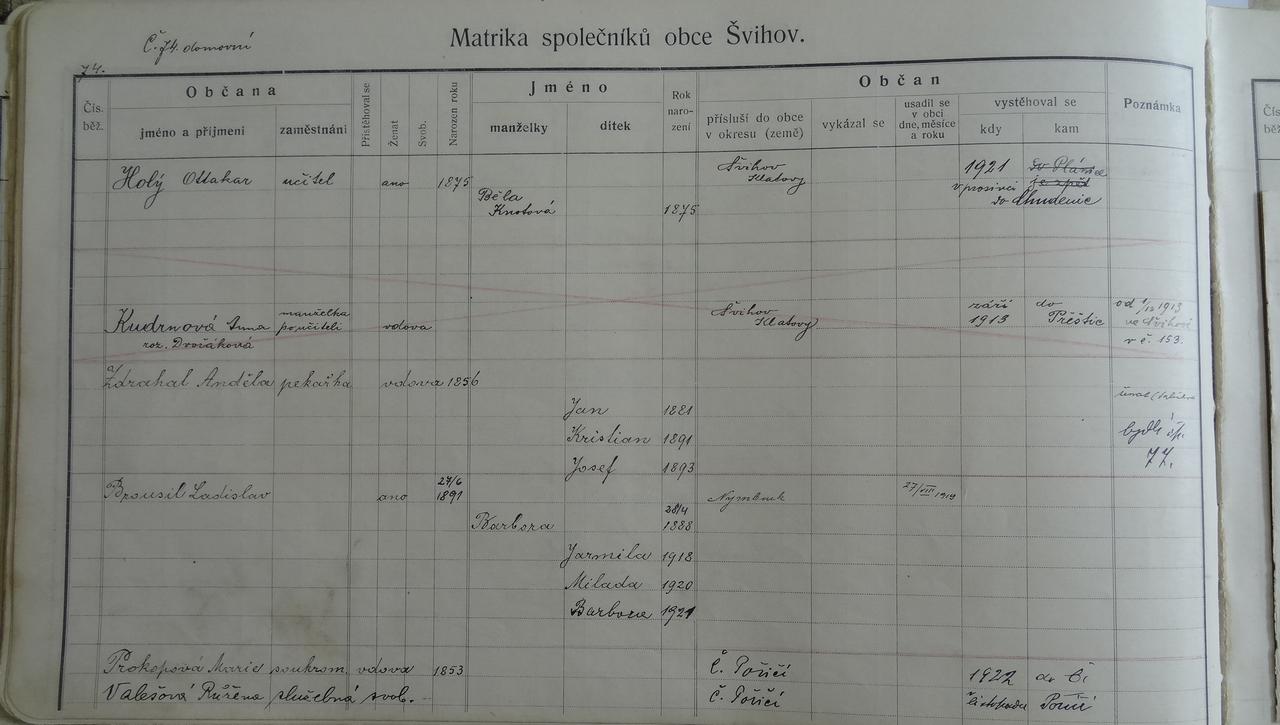 Č. 74. domovní
Matrika společníků obce Švihov.
74.
Čís. běž.
Občana
jméno a příjmení
zaměstnání
Přistěhoval se
Ženat
Svob.
Narozen roku
Jméno
manželky
dítek
Rok naro- zení
Občan
přísluší do obce v okresu (země)
vykázal se
usadil se v obci dne, měsíce a roku
vystěhoval se
kdy
kam
Poznámka
Čís
běž
Holý Ottakar učitel ano 1875 Švihov Klatovy 1921 do Plánice
v prosinci je zpět
Běla Knotová 1875 do Chudenic
Kudrnová Anna manželka po učiteli vdova Švihov Klatovy září 1913 do Přeštic od 1/12 1913 ve Švihově
roz. Dvořáková v č. 153.
Zdrahal Anděla pekařka vdova 1856
Jan 1881
Kristian 1891 bydlí
Josef 1893 77.
Brousil Ladislav ano 27/6 1891 Nymburk 27/VIII 1919
Barbora 28/4 1888
Jarmila 1918
Milada 1920
Barbora 1921
Prokopová Marie soukrom. vdova 1853 Č. Poříčí 1922 do Č.
Valešová Růžena služebná svob. Č. Poříčí listopadu Poříčí